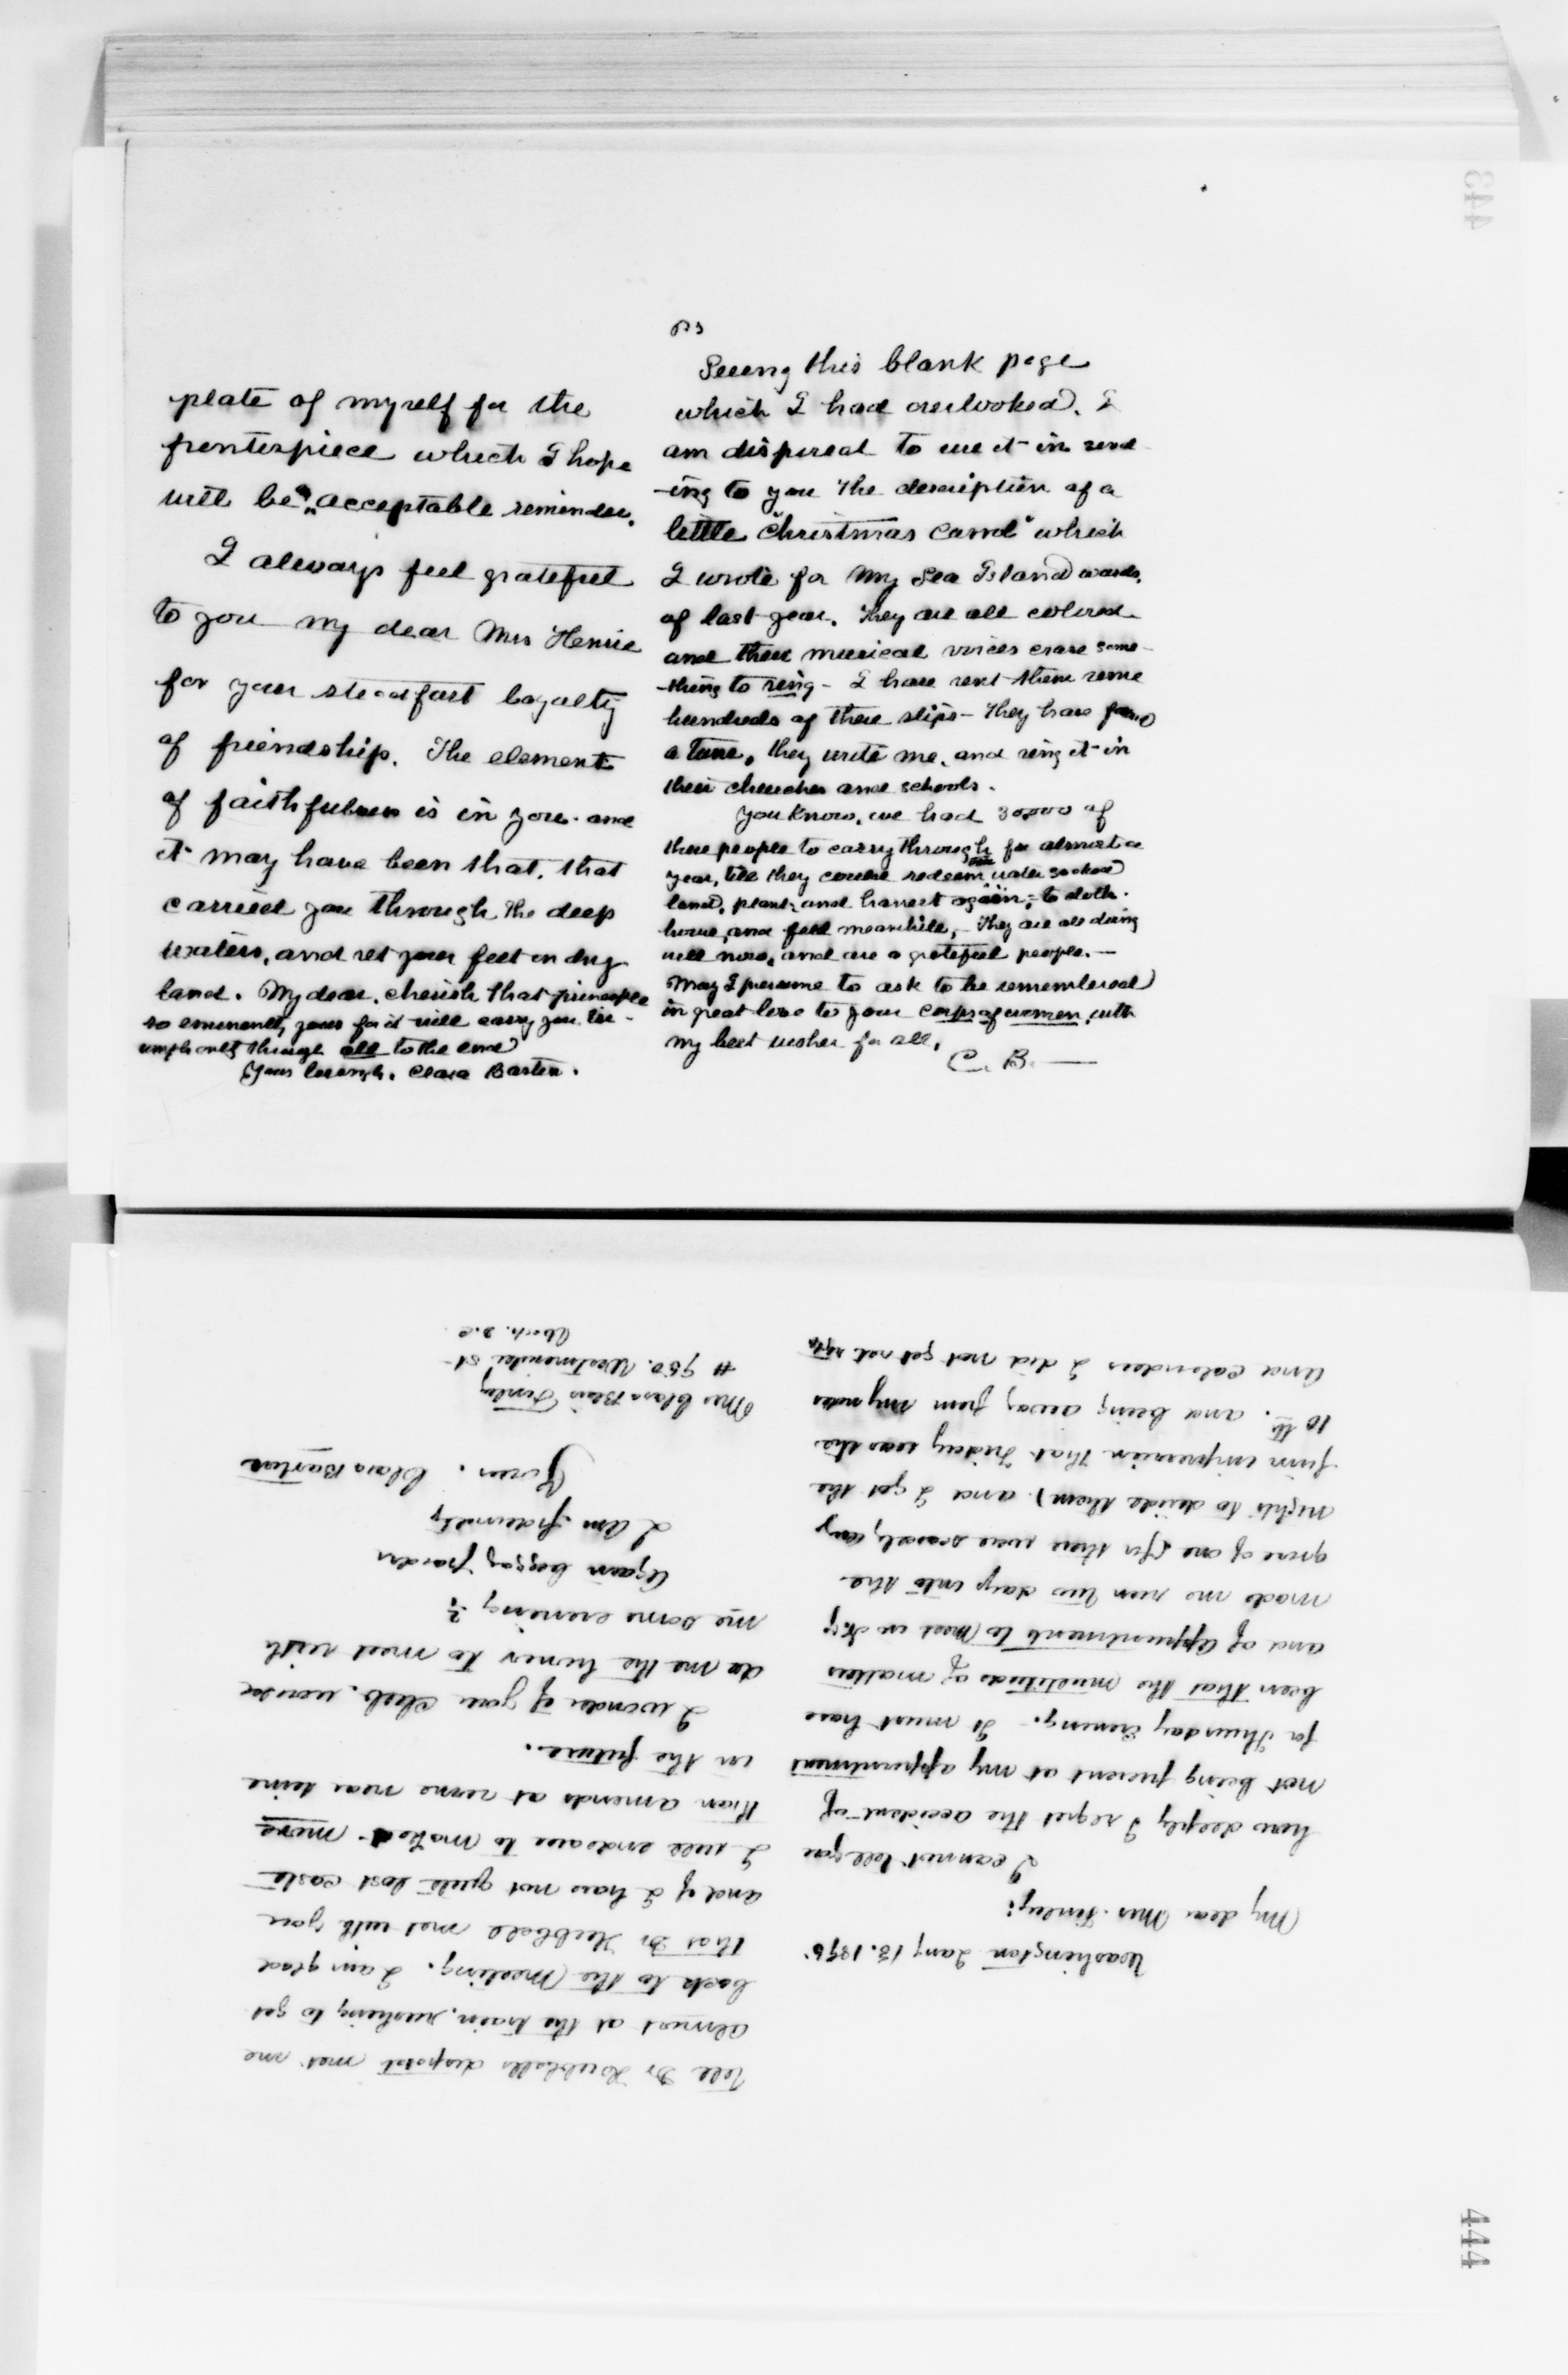 443
plate of myself for the
frontispiece which I hope
will be an acceptable reminder.
I always feel grateful
to you my dear Mrs Henrie
for your steadfast loyalty
of friendship. The element
of faithfulness is in you. and
it may have been that, that
carried you through the deep
waters, and set your feet on dry
land. My dear, cherish that principle
so eminently yours for it will carry you tri-
umphantly through all to the end
Yours lovingly. Clara Barton.
Seeing this blank page
which I had overlooked, I
am disposed to use it in send
-ing to you the description of a
little "Christmas Carol" which
I wrote for My Sea Island wards,
of last year. They are all colored
and their musical voices crave some-
-thing to sing - I have sent them some
hundreds of these slips - They have found
a tune, they write me, and sing it in
their churches and schools.
You know, we had 30000 of
these people to carry through for almost a
year, till they could redeem water soaked
land, plant, and harvest again, - to clothe
house, and feed meanwhile, - They are all doing
well now, and are a grateful people. -
May I presume to ask to be remembered
in great love to your Corps of women, with
my best wishes for all,
C. B. -
444
Washington Jany 13. 1895.
My dear Mrs. Finley:
I cannot tell you
how deeply I regret the accident of
not being present at my appointment
for Thursday Evening. - It must have
been that the multitude of matters
and of appointments to meet in N.Y.
made me run two days into the
space of one (for there were scarcely any
nights to divide them) and I got the
firm impression that Friday was the
10th. and being away from my notes
and Calendars I did not get set right
till Dr Hubbells dispatch met me
almost at the train, rushing to get
back to the Meeting. I am glad
that Dr Hubbell met with you
and if I have not quite lost caste
I will endeavor to make - more
than amends at some near time
in the future.
I wonder if your Club. would
do me the honor to meet with
me some evening?
Again begging pardon
I am fraternally
Yours. Clara Barton
Mrs Clara Bliss Finley
# 950. Westminster St -
Wash. D.C.